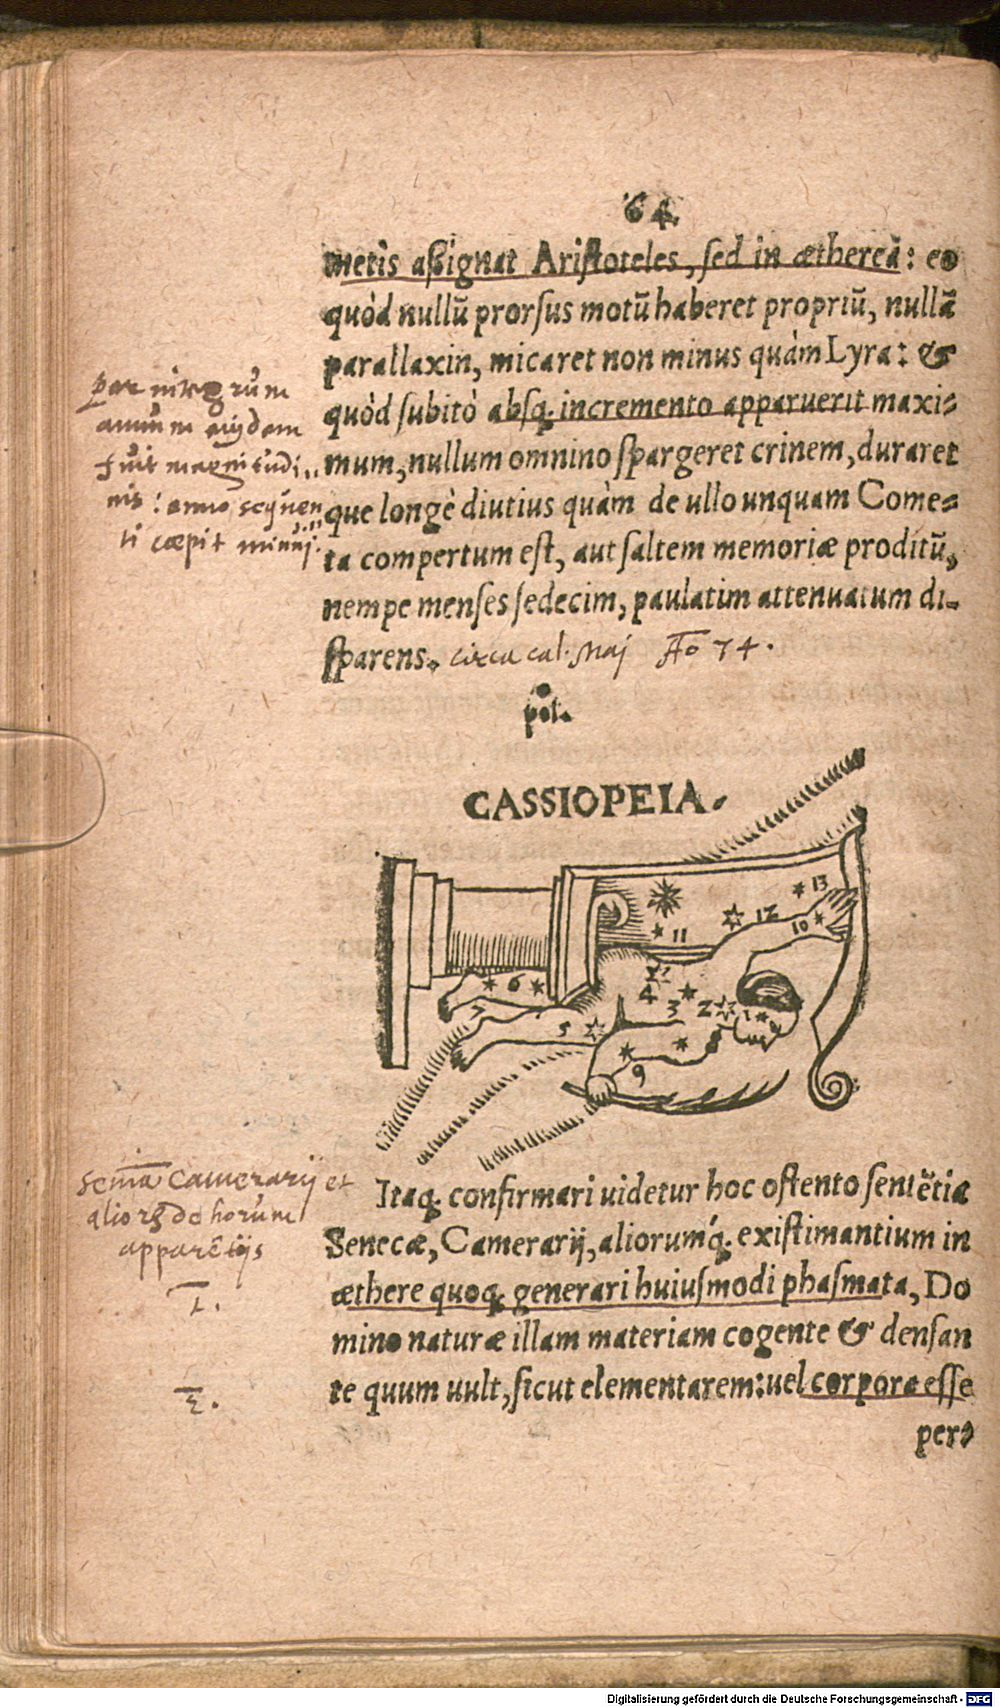 64.
metis aßignat Aristoteles, sed in ætherea: eo
quòd nullũ prorsus motũ haberet propriũ, nullã
parallaxin, micaret non minus quàm Lyra: &
quòd subitò absq; incremento apparuerit maxi=
mum, nullum omnino spargeret crinem, duraret
que longè diutius quàm de ullo unquam Come=
ta compertum est, aut saltem memoriæ proditũ,
nempe menses sedecim, paulatim attenuatum di-
sparens. circa cal. Maij Ao 74.
per integrum
annum eiusdem
fuit magnitudi,,
nis: anno sequen
ti cœpit minui.
pol.
CASSIOPEIA.
13
12
10
11
6
4
3
2
1
7
5
8
9
Itaq; confirmari uidetur hoc ostento sentẽtia
Senecæ, Camerarij, aliorumq́; existimantium in
æthere quoq; generari huiusmodi phasmata, Do
mino naturæ illam materiam cogente & densan
te quum uult, sicut elementarem: uel corpora esse
per=
Camerarij et
de horum
1.
2.
Digitalisierung gefördert durch die Deutsche Forschungsgemeinschaft - DFG